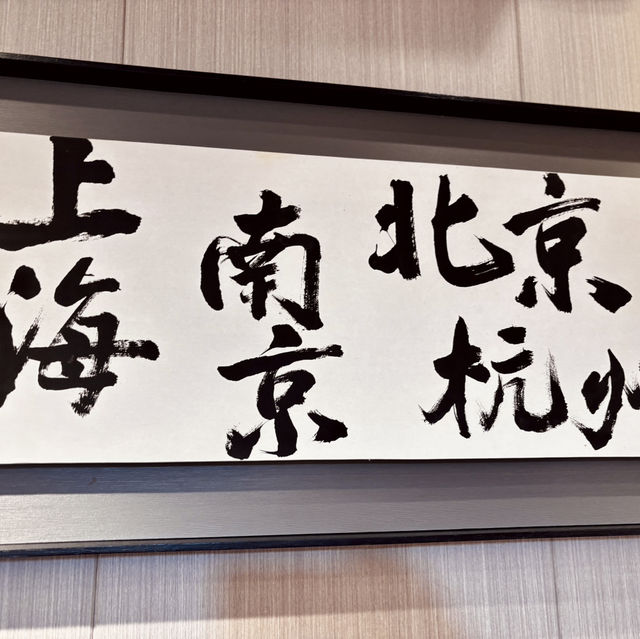 上海
南京
北京
杭州